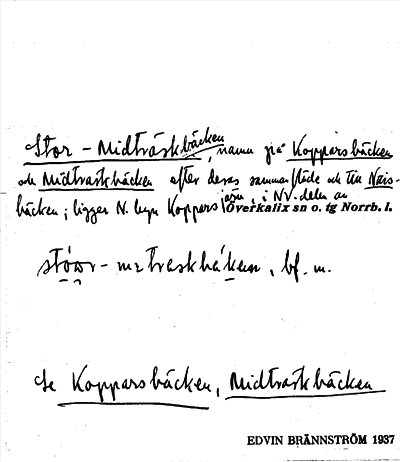 Stor-Midträskbäcken, namn på Kopparsbäcken
och Midträskbäcken efter deras sammanflöde och till Näis-
bäcken; ligger N. byn Koppars ..., i NV. delen av
Överkalix sn o. tg Norrb. l.
bf. m.
Se Kopparsbäcken, Midträskbäcken
EDVIN BRÄNNSTRÖM 1937